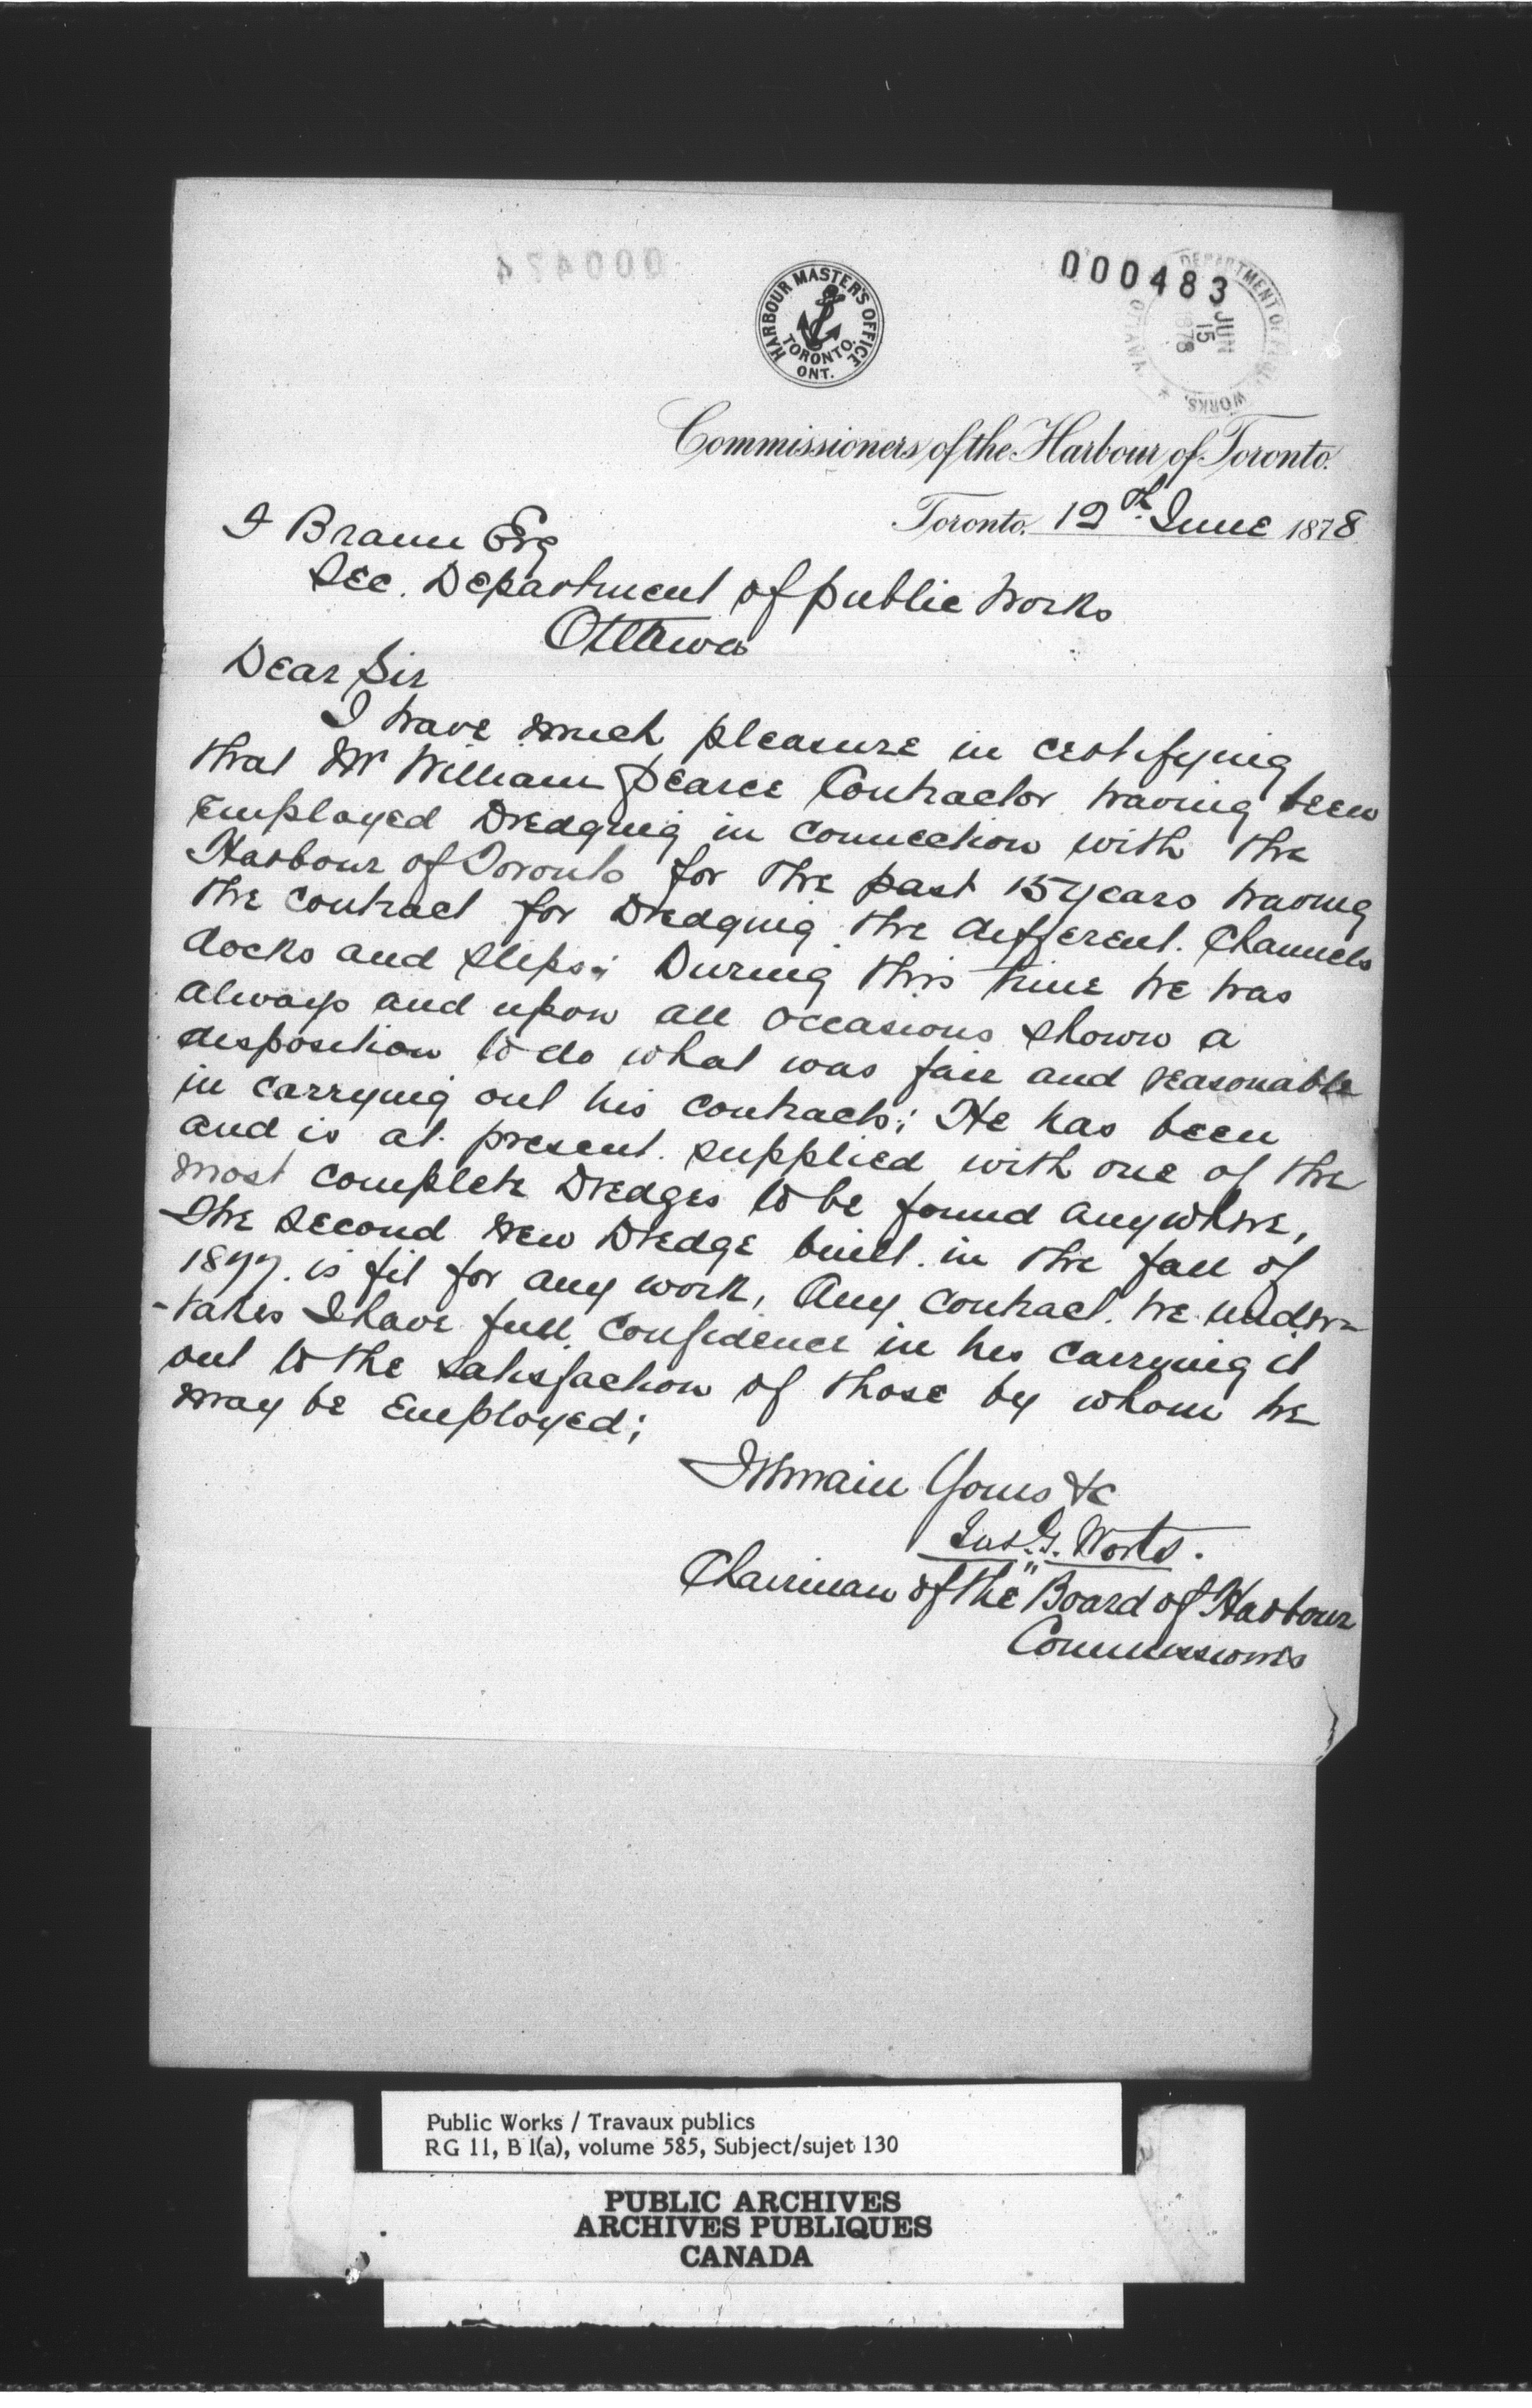 000474
HARBOUR MASTER'S OFFICE
TORONTO.
ONT.
000483
DEPARTMENT OF PUBLIC WORKS, OTTAWA
JUN
15
1878
Commissioners of the Harbour of Toronto.
Toronto, 12th June 1878
F Braun Esq
Sec. Department of public Works
Ottawa
Dear Sir
I have much pleasure in certifying
that Mr William Pearce Contractor having been
Employed Dredging in connection with the
Harbour of Toronto for the past 15 years having
the contract for Dredging the different Channels
docks and slips; During this time he has
always and upon all occasions shown a
disposition to do what was fair and reasonable
in carrying out his contracts; He has been
and is at present supplied with one of the
most complete Dredges to be found anywhere,
The second New Dredge built in the fall of
1877. is fit for any work, Any contract he under-
-takes I have full confidence in his carrying it
out to the satisfaction of those by whom he
may be Employed;
I remain Yours &c
Jas. G. Worts.
Chairman of the Board of Harbour
Commissioners
Public Works / Travaux publics
RG 11, B 1(a), volume 585, Subject/sujet 130
PUBLIC ARCHIVES
ARCHIVES PUBLIQUES
CANADA